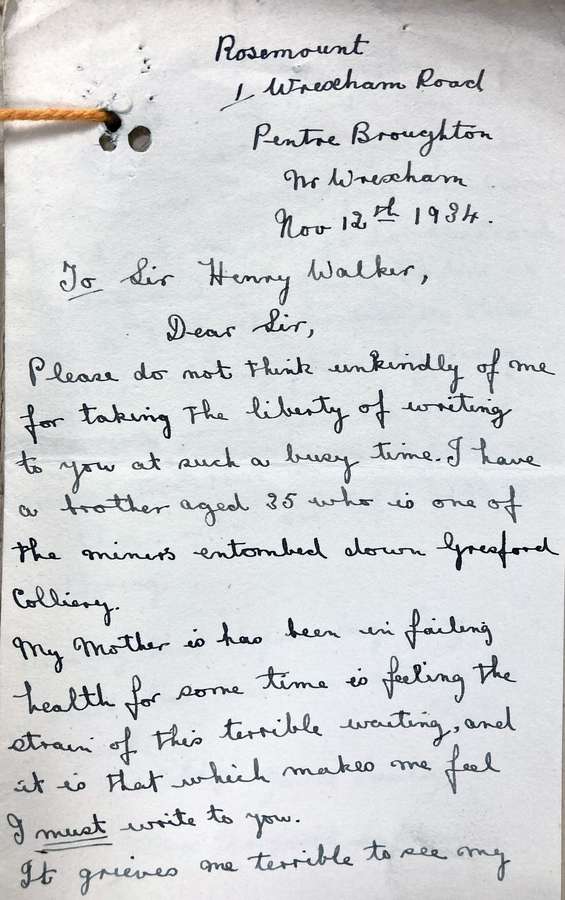 Rosemount
1 Wrexham Road
Pentre Broughton
Nr Wrexham
Nov 12th 1934.
To Sir Henry Walker,
Dear Sir,
Please do not think unkindly of me
for taking the liberty of writing
to you at such a busy time. I have
a brother aged 35 who is one of
the miners entombed down Gresford
Colliery.
My Mother is has been in failing
health for some time is feeling the
strain of this terrible waiting, and
it is that which makes me feel
I must write to you.
It grieves me terrible to see my